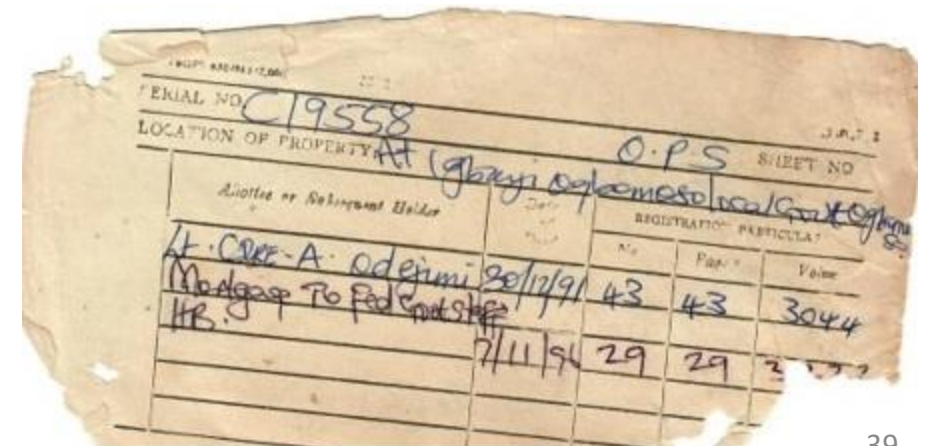 SERIAL NO. C19558
O.P.S SHEET NO
LOCATION OF PROPERTY At Igbayi Ogbomoso Local Govt Ogbomoso
Allottee or Subsequent Holder
Date of
REGISTRATION PARTICULAR
No Page Volume
Lt. CDRE. A. Odejimi 30/12/91 43 43 3044
Mortgage To Fed Govt Staff
HB. 7/11/96 29 29
39